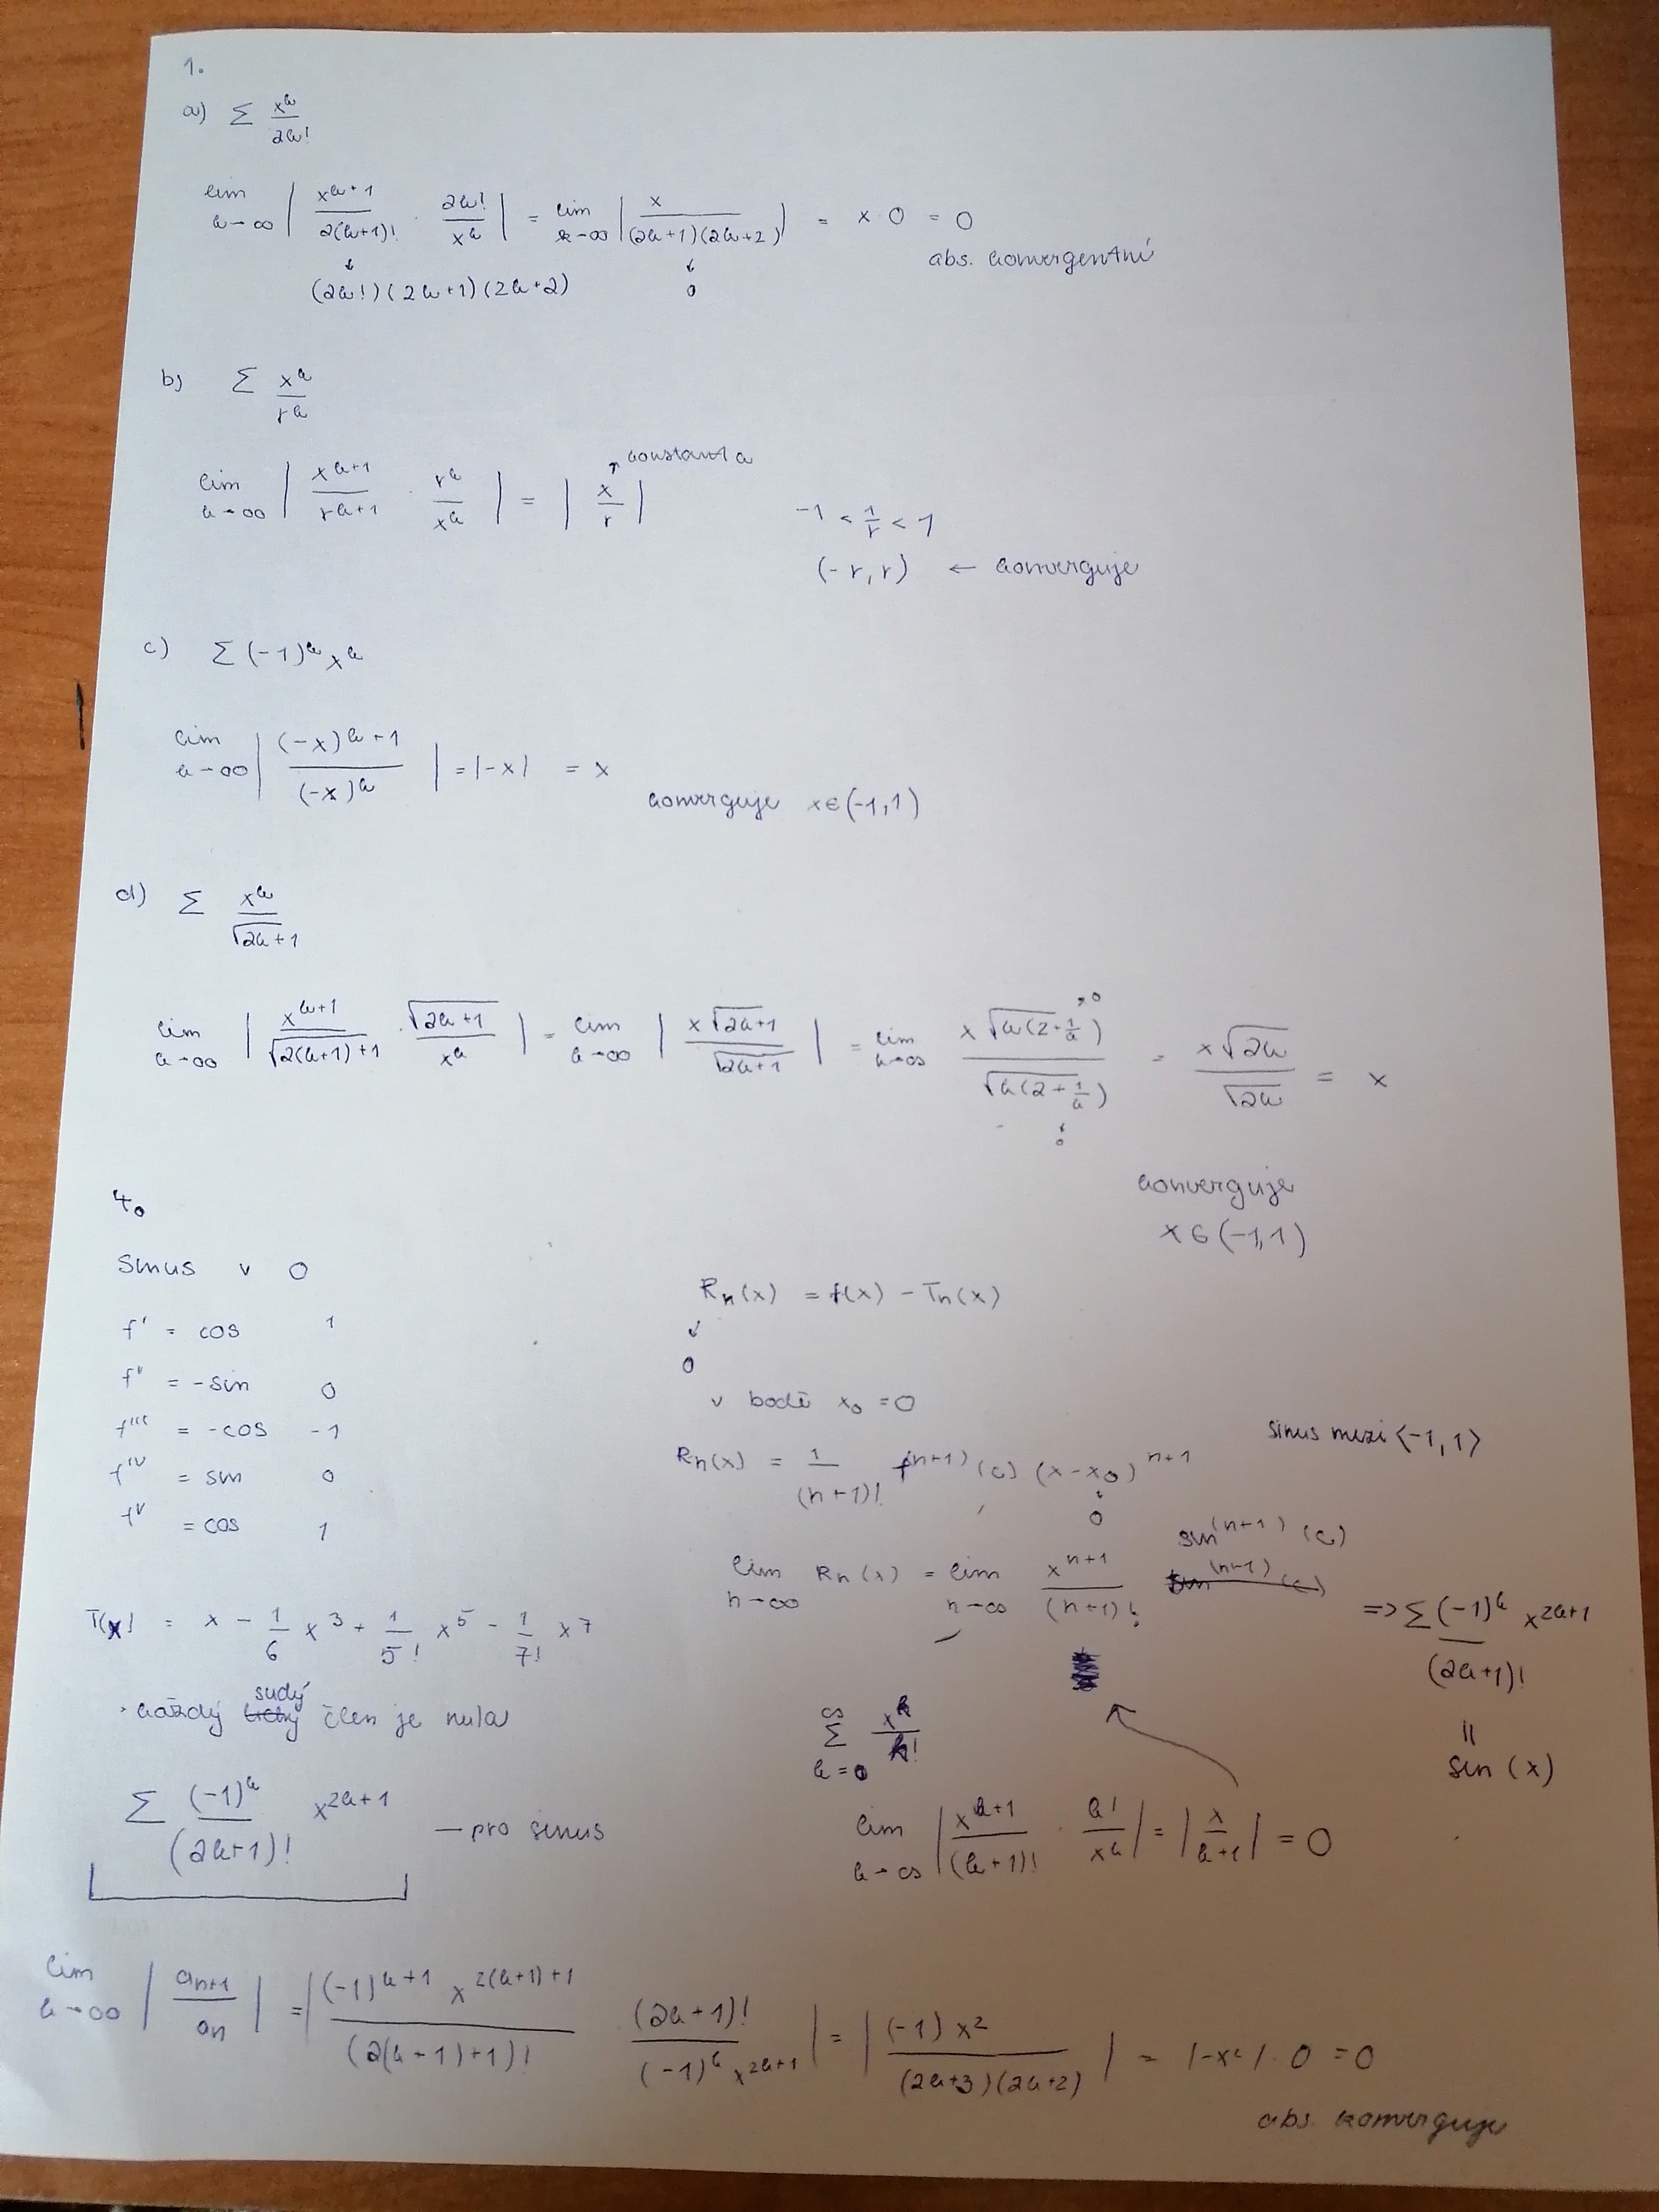 1.
a) Σ x^k / 2k!
lim k→∞ | x^(k+1) / 2(k+1)! · 2k! / x^k | = lim k→∞ | x / (2k+1)(2k+2) | = x·0 = 0
↓ (2k!)(2k+1)(2k+2) ↓ 0
abs. konvergentní
b) Σ x^k / r^k
lim k→∞ | x^(k+1) / r^(k+1) · r^k / x^k | = | x / r | ↗ konstanta
-1 < 1/r < 1
(-r, r) ← konverguje
c) Σ (-1)^k x^k
lim k→∞ | (-x)^(k+1) / (-x)^k | = |-x| = x
konverguje x∈(-1,1)
d) Σ x^k / √2k+1
lim k→∞ | x^(k+1) / √2(k+1)+1 · √2k+1 / x^k | = lim k→∞ | x√2k+1 / √2k+1 | = lim k→∞ x√k(2+1/k) / √k(2+1/k) = x√2k / √2k = x
→0
↓ 0
konverguje
x∈(-1,1)
4.
sinus v 0
f' = cos 1
f'' = -sin 0
f''' = -cos -1
f^IV = sin 0
f^V = cos 1
T(x) = x - 1/6 x^3 + 1/5! x^5 - 1/7! x^7
· každý sudý člen je nula
Σ (-1)^k / (2k+1)! x^(2k+1) — pro sinus
Rn(x) = f(x) - Tn(x)
↓
0
v bodě x0 = 0
Rn(x) = 1 / (n+1)! f^(n+1) (c) (x-x0)^(n+1)
↓
0
sinus mezi ⟨-1,1⟩
lim n→∞ Rn(x) = lim n→∞ x^(n+1) / (n+1)! sin^(n+1) (c)
=> Σ (-1)^k x^(2k+1) / (2k+1)!
||
sin (x)
∞ Σ k=0 x^k / k!
lim k→∞ | x^(k+1) / (k+1)! · k! / x^k | = | x / k+1 | = 0
lim k→∞ | an+1 / an | = | (-1)^(k+1) x^(2(k+1)+1) / (2(k+1)+1)! (2k+1)! / (-1)^k x^(2k+1) | = | (-1) x^2 / (2k+3)(2k+2) | = |-x^2|·0 = 0
abs. konverguje